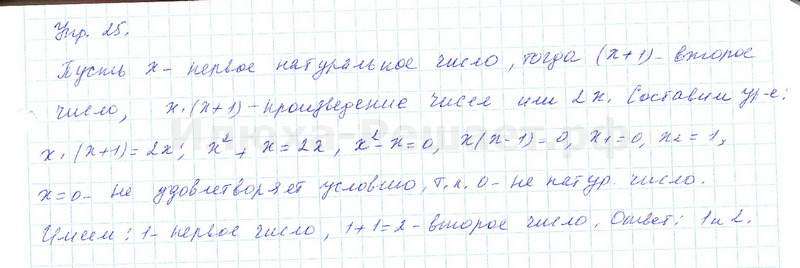 Упр. 25.
Пусть x - первое натуральное число, тогда (x+1) - второе
число, x·(x+1) - произведение чисел или 2x. Составим ур-е:
x·(x+1)=2x; x²+x=2x, x²-x=0, x(x-1)=0, x₁=0, x₂=1,
x=0 - не удовлетворяет условию, т.к. 0 - не натур. число.
Имеем: 1 - первое число, 1+1=2 - второе число. Ответ: 1 и 2.